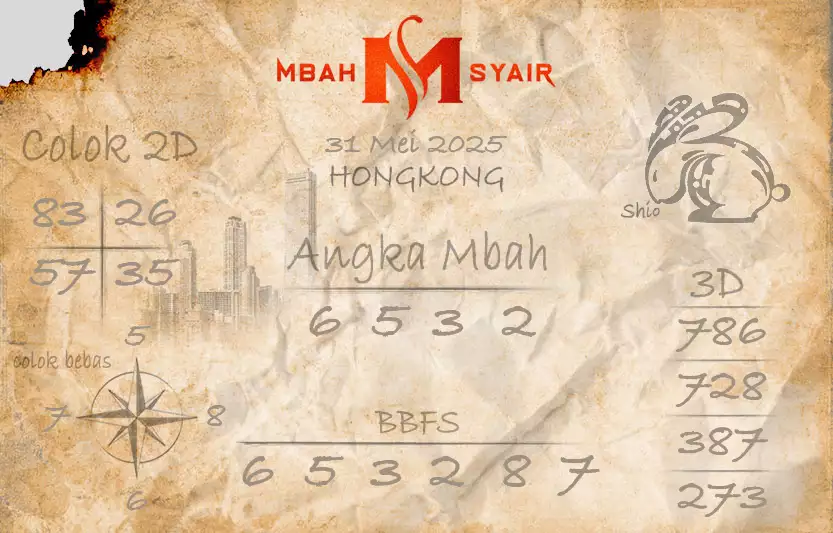 MBAH M SYAIR
31 Mei 2025
HONGKONG
Colok 2D
83 26
57 35
Angka Mbah
6 5 3 2
Shio
3D
786
728
387
273
colok bebas
5
7 8
6
BBFS
6 5 3 2 8 7